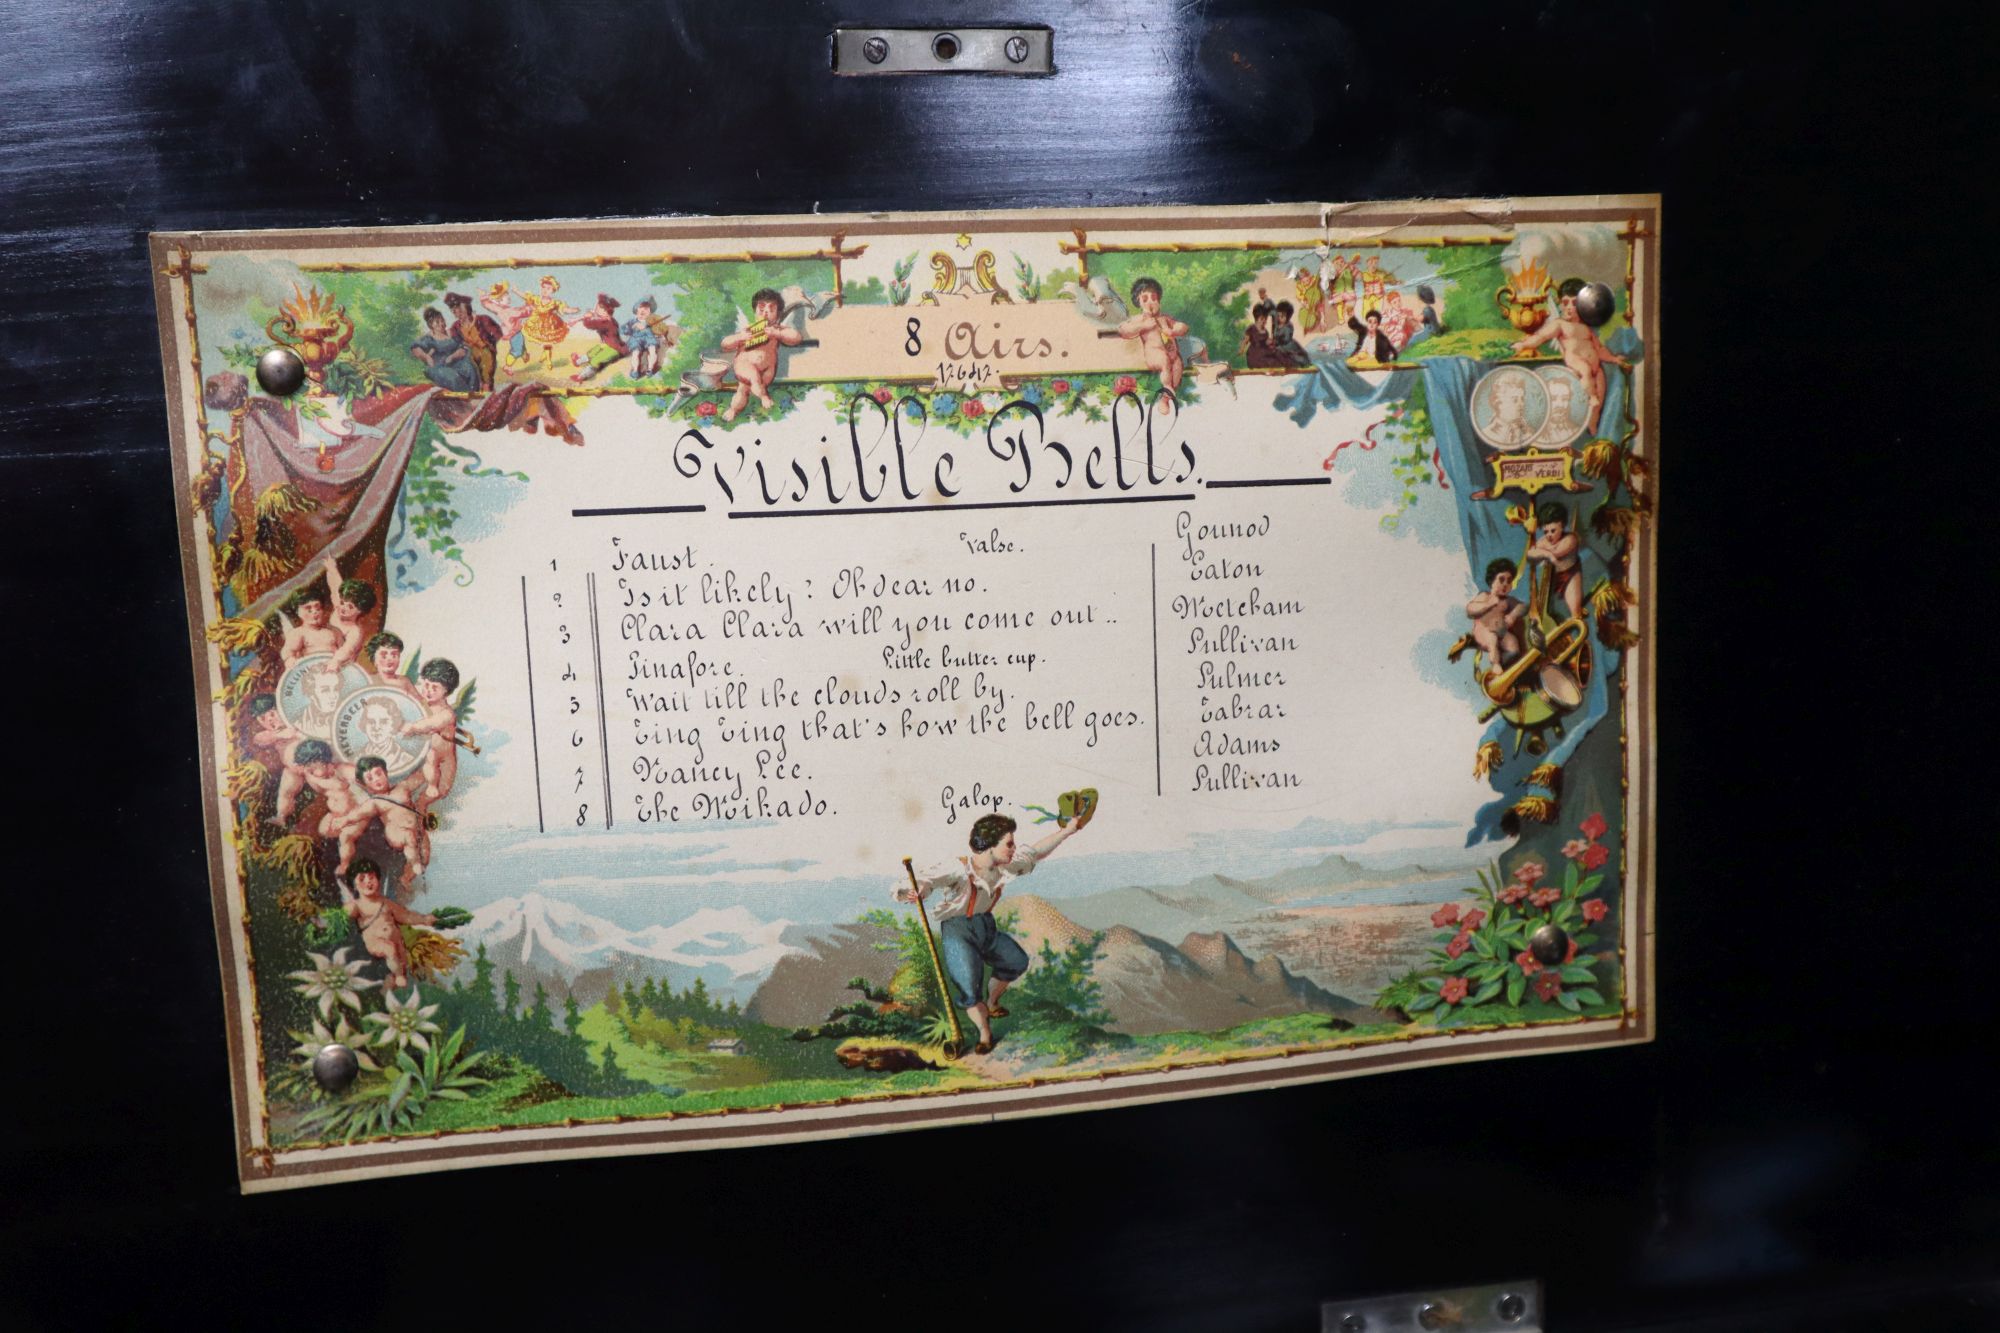 8 Airs.
12642.
Visible Bells.
1 Faust. Valse. Gounod
2 Is it likely? Oh dear no. Eaton
3 Clara Clara will you come out.. Metcham
4 Pinafore. Little butter cup. Sullivan
5 Wait till the clouds roll by. Fulmer
6 Ting Ting that's how the bell goes. Tabrar
7 Nancy Lee. Adams
8 The Mikado. Galop. Sullivan
MOZART VERDI
BELLINI
MEYERBEER